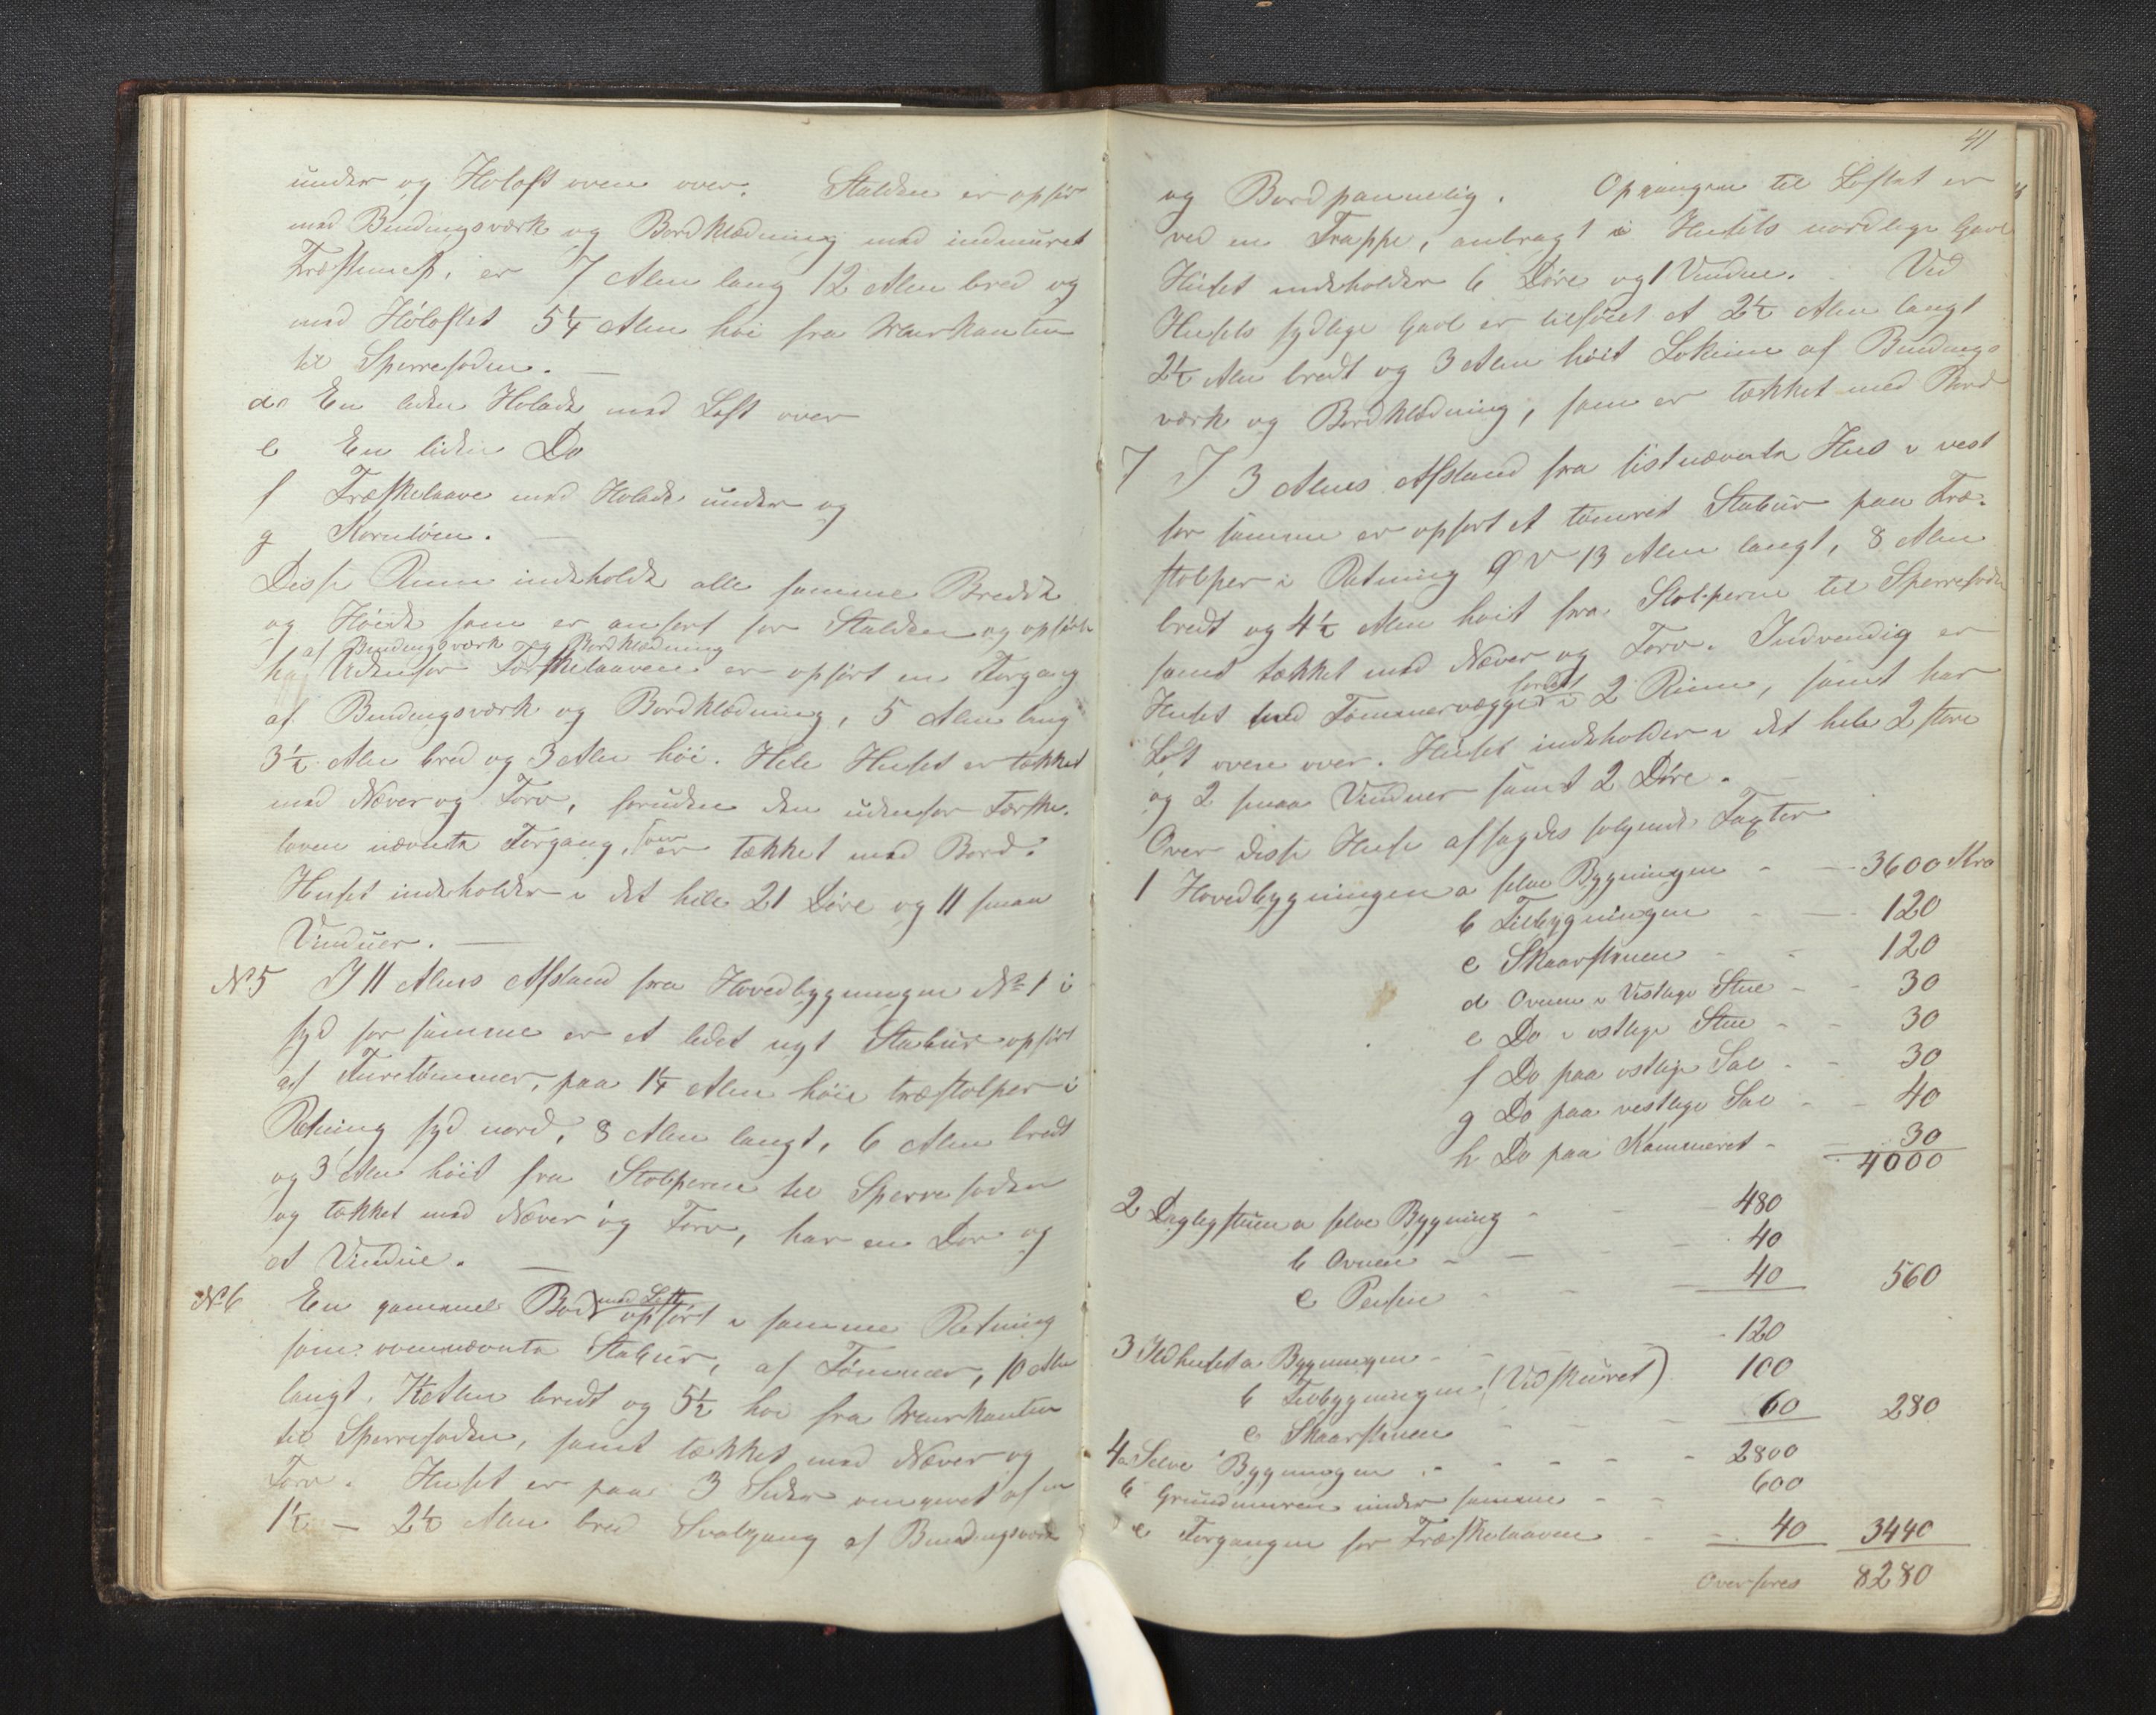 under og Høloft oven over. Stalden er opført
med Bindingsværk og Bordklædning med indmuret
er 7 Alen lang 12 Alen bred og
med Høloftet 5¼ Alen høi fra Murkanten
til Sperrefoden. —
d. En liden Holade med Loft over
e En liden Do
f Træskelaave med Holade under og
g Kornløm. —
Disse Rum indeholde alle samme Bredde
og Høide som er anført for Stalden og opførte
af Bindingsværk og Bordklædning
h Udenfor Tærskelaaven er opført en Forgang
af Bindingsværk og Bordklædning, 5 Alen lang
3½ Alen bred og 3 Alen høi. Hele Huset er tækket
med Næver og Torv, foruden den udenfor Tærske-
loven nævnte Forgang, som er tækket med Bord.
Huset indeholder i det hele 21 Døre og 11 smaa
Vinduer. —
No 5 I 11 Alens Afstand fra Hovedbygningen No 1 i
syd for samme er et lidet nyt Stabur opført
af Furetømmer, paa 1¼ Alen høie træstolper i
Retning syd nord, 8 Alen langt, 6 Alen bredt
og 3 Alen høit fra Stolperne til Sperrefoden
og tækket med Næver og Torv, har en Dør og
et Vindue. —
No 6 En gammel Bod med Loft opført i samme Retning
som ovennævnte Stabur, af Tømmer, 10 Alen
langt, 7½ Alen bredt og 5½ høi fra Murkanten
til Sperrefoden, samt tækket med Næver og
Torv. Huset er paa 3 Sider omgivet af en
1½ — 2½ Alen bred Svalgang af Bindingsværk
41
og Bordpanneling. Opgangen til Loftet er
ved en Trappe, anbragt i Husets nordlige Gavl
Huset indeholder 6 Døre og 1 Vindue. Ved
Husets sydlige Gavl er tilføiet et 2½ Alen langt
2½ Alen bredt og 3 Alen høit Lokum af Bindings
værk og Bordklædning, som er tækket med Bord
7 I 3 Alens Afstand fra sistnævnte Hus i vest
for samme er opført et tømret Stabur paa Træ-
stolper i Retning Ø V 13 Alen langt, 8 Alen
bredt og 4½ Alen høit fra Stolperne til Sperrefoden
samt tækket med Næver og Torv. Indvendig er
Huset med Tømmervægge fordelt i 2 Rum, samt har
Loft oven over. Huset indeholder i det hele 2 store
og 2 smaa Vinduer samt 2 Døre.
Over disse Huse afsagdes følgende Taxter
1 Hovedbygningen a selve Bygningen - — 3600 Kro
b Tilbygningen - — 120
c Skaarstenen - - 120
d Ovnen i Vestlige Stue - - 30
e Do i østlige Stue - - 30
f Do paa østlige Sal - - 30
g Do paa vestlige Sal - - 40
h Do paa Kammeret - — 30
4000
2 Dagligstuen a selve Bygning - - — 480
b Ovnen - — - — 40
c Peisen - - — 40 560
3 Ildhuset a Bygningen - - 120
b Tilbygningen (Vedskuret) 100
c Skaarstenen - - — 60 280
4 a Selve Bygningen - - - - - 2800
b Grundmuren under samme - - 600
c Forgangen for Træskelaaven - - 40 3440
Overføres 8280